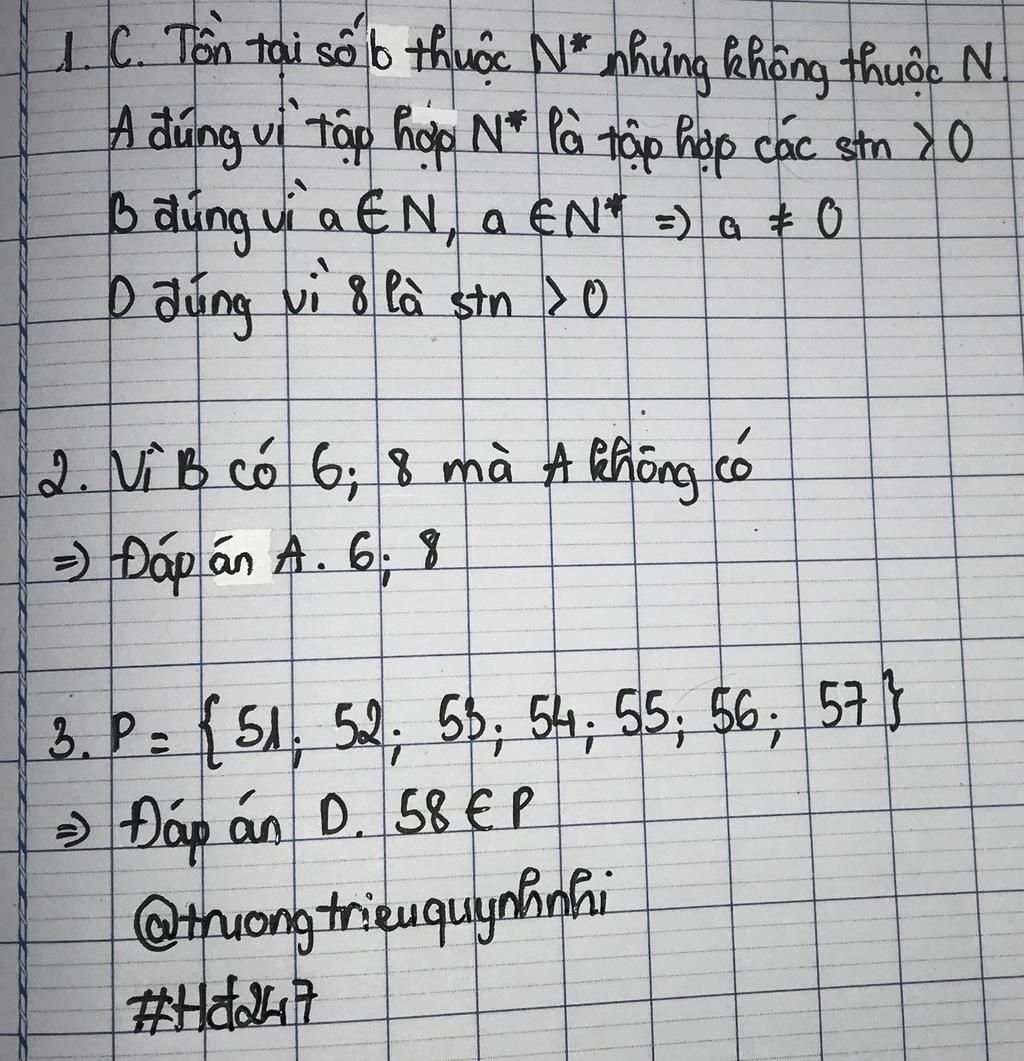 1. C. Tồn tại số b thuộc N* nhưng không thuộc N.
A đúng vì tập hợp N* là tập hợp các stn > 0
B đúng vì a ∈ N, a ∈ N* => a ≠ 0
D đúng vì 8 là stn > 0
2. Vì B có 6; 8 mà A không có
=> Đáp án A. 6; 8
3. P = { 51; 52; 53; 54; 55; 56; 57 }
=> Đáp án D. 58 ∈ P
@truongtrieuquynhnhi
#Hđ247